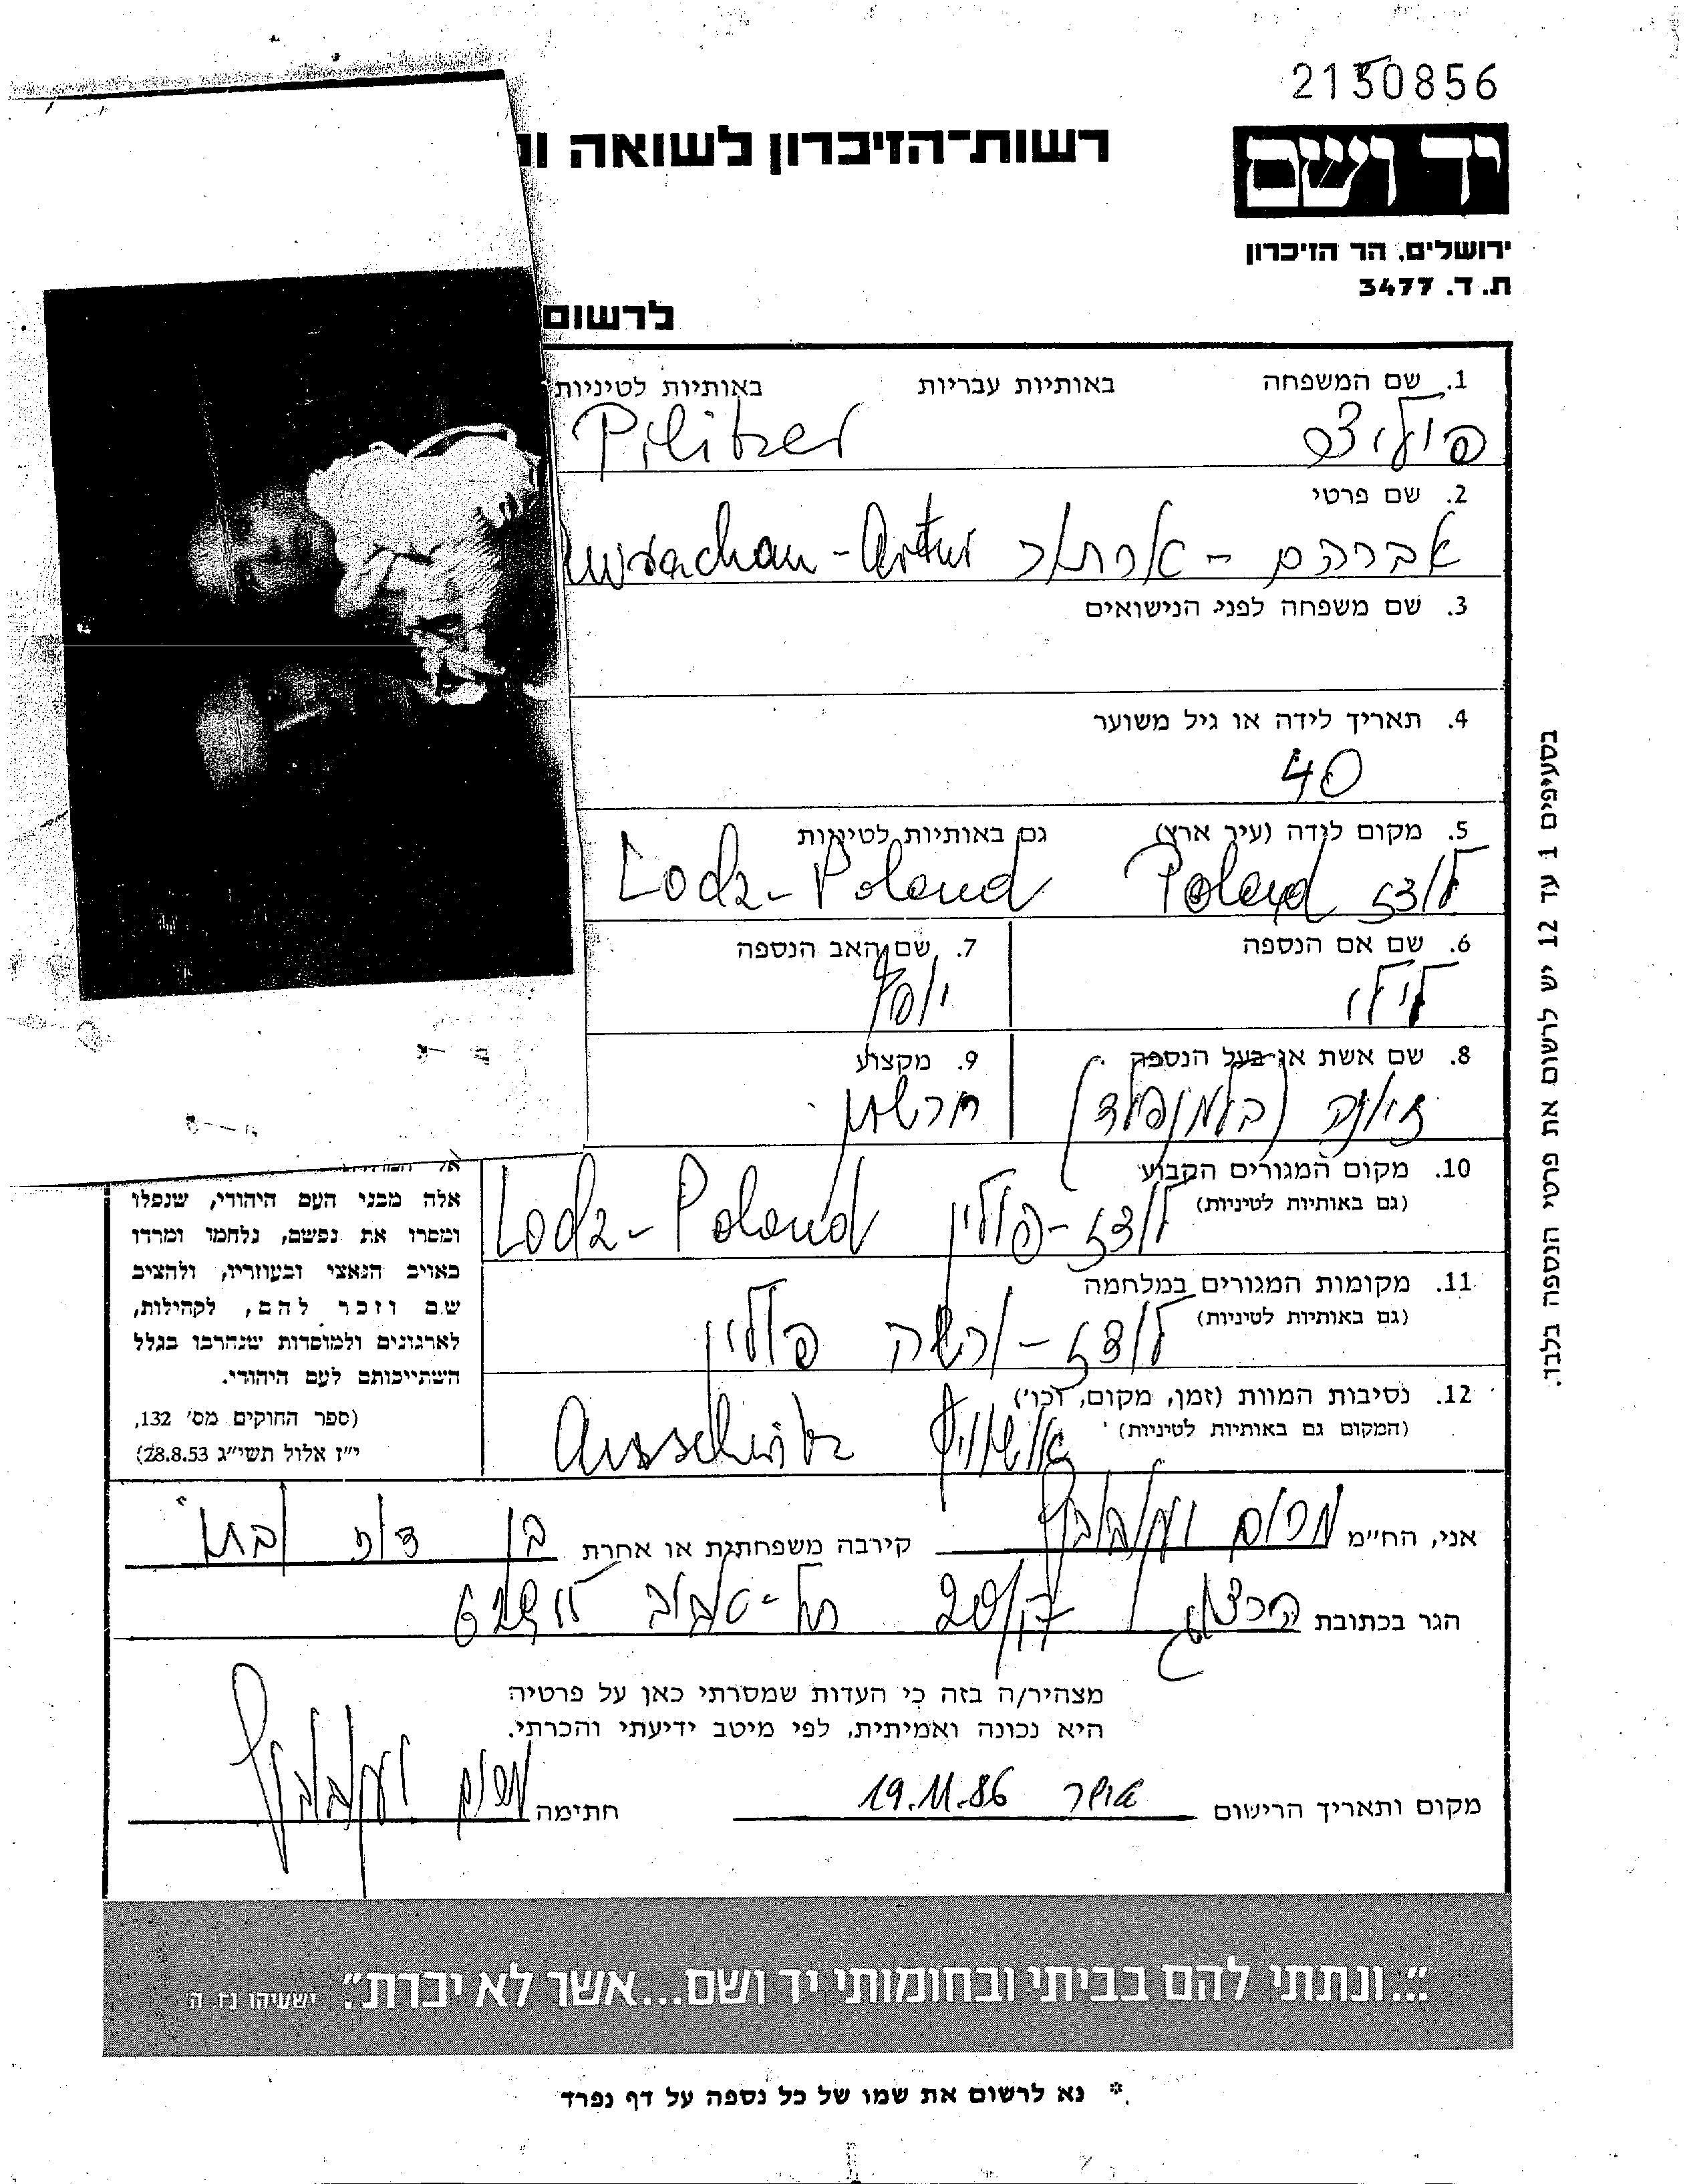 2150856
יד ושם
רשות־הזיכרון לשואה
ירושלים, הר הזיכרון
ת. ד. 3477
לרשום
1. שם המשפחה באותיות עבריות באותיות לטיניות
Pilitzer
2. שם פרטי
אברהם - ארתור Artur
3. שם משפחה לפני הנישואים
4. תאריך לידה או גיל משוער
40
5. מקום לידה (עיר ארץ) גם באותיות לטיניות
לודז Poland Lodz - Poland
6. שם אם הנספה 7. שם האב הנספה
לילי יוסף
8. שם אשת או בעל הנספה 9. מקצוע
(בלומנפלד)
10. מקום המגורים הקבוע
(גם באותיות לטיניות)
לודז - פולין Lodz - Poland
11. מקומות המגורים במלחמה
(גם באותיות לטיניות)
לודז - ורשה פולין
12. נסיבות המוות (זמן, מקום, וכו')
(המקום גם באותיות לטיניות)
אושוויץ Ausschwitz
אלה מבני העם היהודי, שנפלו
ומסרו את נפשם, נלחמו ומרדו
באויב הנאצי ובעוזריו, ולהציב
שם וזכר להם, לקהילות,
לארגונים ולמוסדות שנחרבו בגלל
השתייכותם לעם היהודי.
(ספר החוקים מס' 132,
י"ז אלול תשי"ג 28.8.53)
אני, הח"מ קירבה משפחתית או אחרת בן דוד
הגר בכתובת תל-אביב
מצהיר/ה בזה כי העדות שמסרתי כאן על פרטיה
היא נכונה ואמיתית, לפי מיטב ידיעתי והכרתי.
מקום ותאריך הרישום 19.11.86 חתימה
"...ונתתי להם בביתי ובחומותי יד ושם...אשר לא יכרת". ישעיהו נו, ה
* נא לרשום את שמו של כל נספה על דף נפרד
בסעיפים 1 עד 12 יש לרשום את פרטי הנספה בלבד.